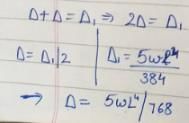 Δ + Δ = Δ₁ ⇒ 2Δ = Δ₁
Δ = Δ₁/2 | Δ₁ = 5ωl⁴/384
→ Δ = 5ωL⁴/768